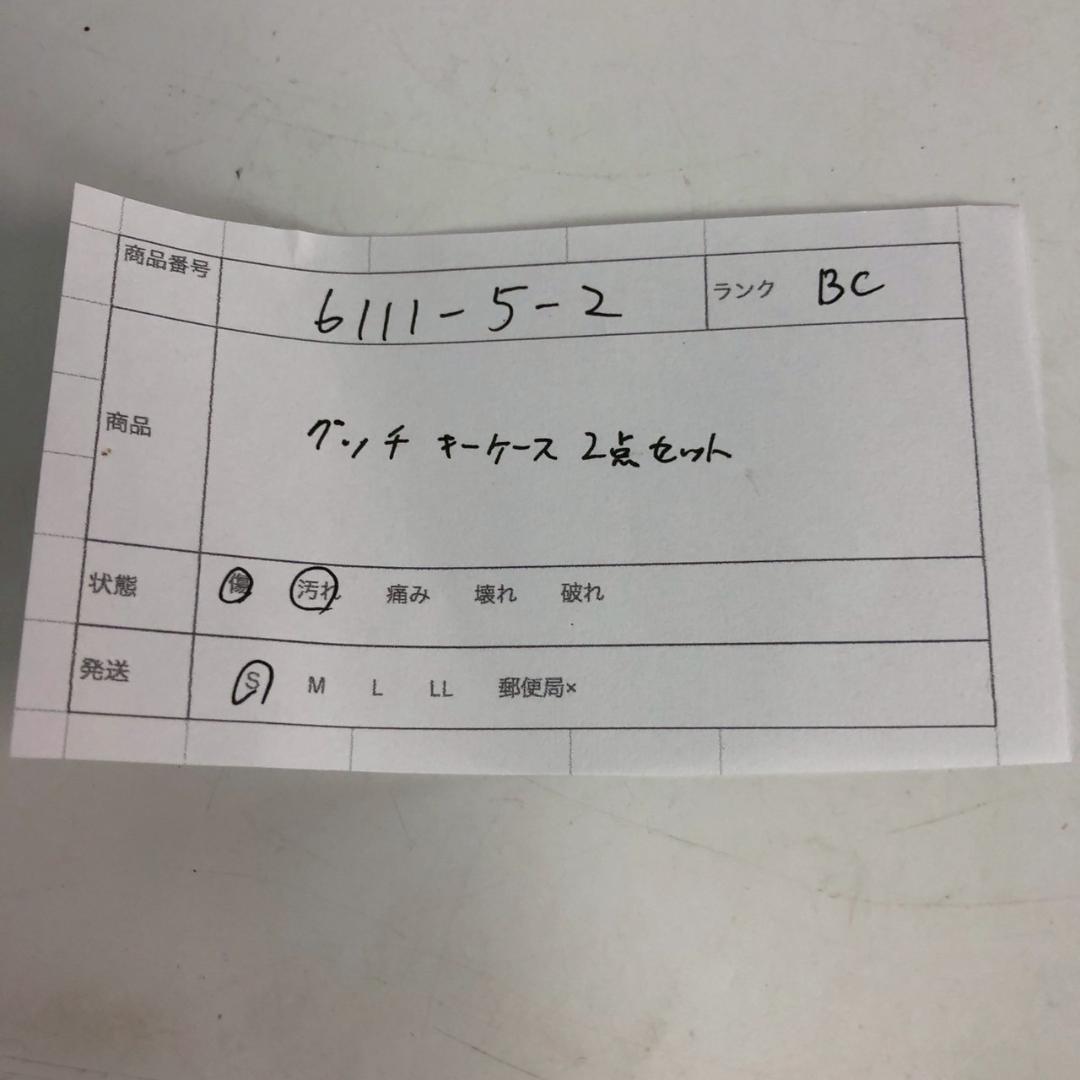 商品番号 6111-5-2 ランク BC
商品 グッチ キーケース 2点セット
状態 傷 汚れ 痛み 壊れ 破れ
発送 S M L LL 郵便局×